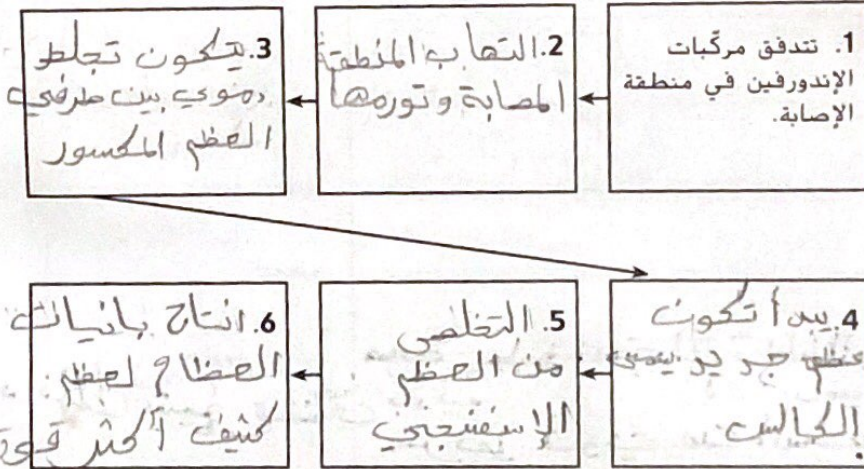 1. تتدفق مركّبات
الإندورفين في منطقة
الإصابة.
2. التهاب المنطقة
المصابة وتورمها
3. يتكون تجلط
دموي بين طرفي
العظم المكسور
4. يبدأ تكون
عظم جديد يسمى
الكالس.
5. التخلص
من العظم
الإسفنجي
6. انتاج بانيات
العظام لعظم
كثيف أكثر قوة